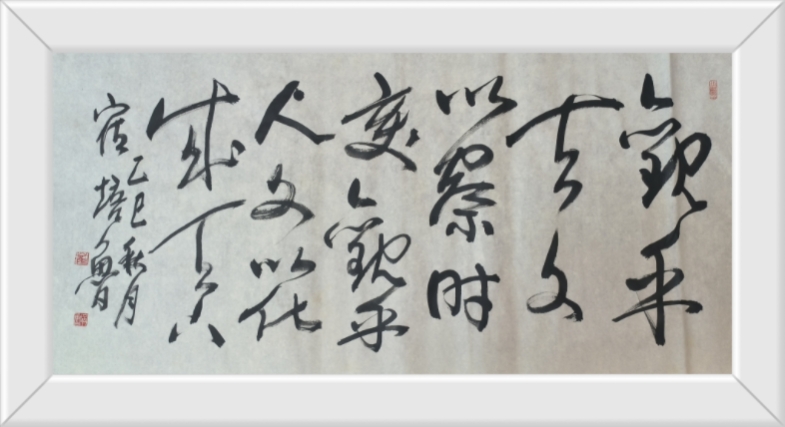 觀乎
天文
以察时
变觀乎
人文以化
成天下
乙巳秋月
宿培鲁